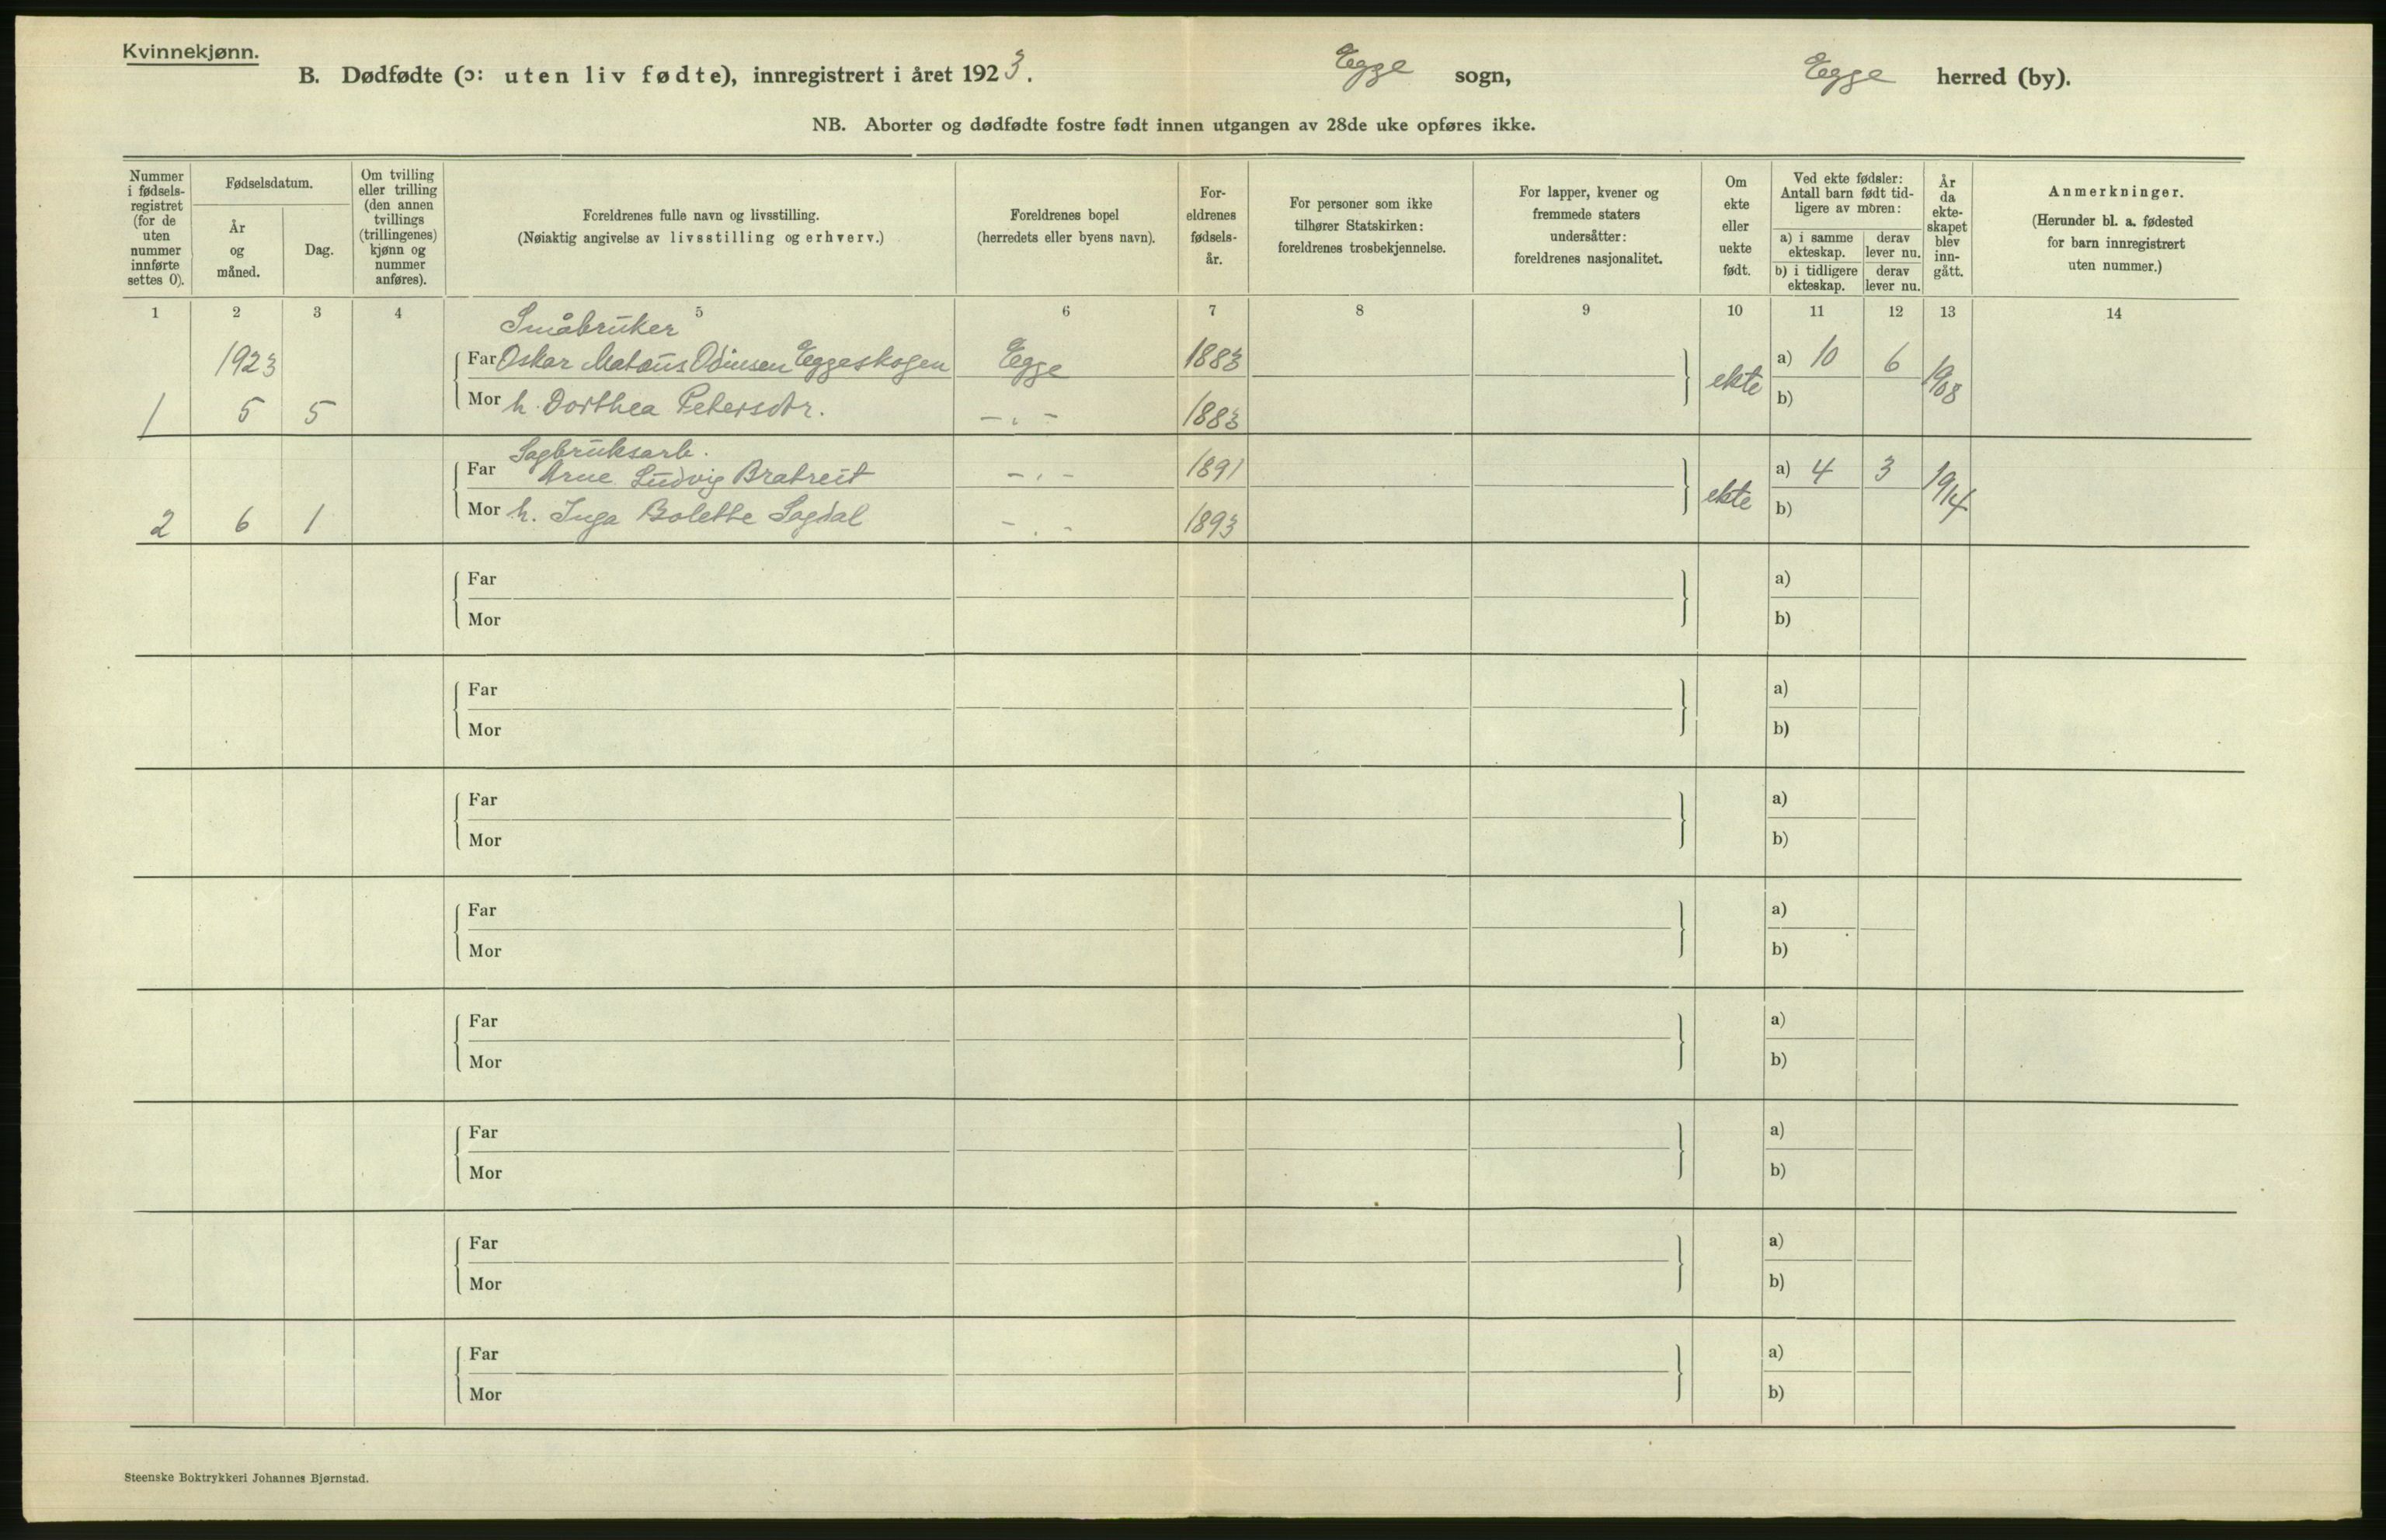 Kvinnekjønn.
B. Dødfødte (ɔ: uten liv fødte), innregistrert i året 1923. Egge sogn, Egge herred (by).
NB. Aborter og dødfødte fostre født innen utgangen av 28de uke opføres ikke.
Nummer i fødsels-registret (for de uten nummer innførte settes 0).
Fødselsdatum.
År og måned.
Dag.
Om tvilling eller trilling (den annen tvillings (trillingenes) kjønn og nummer anføres).
Foreldrenes fulle navn og livsstilling.
(Nøiaktig angivelse av livsstilling og erhverv.)
Foreldrenes bopel
(herredets eller byens navn).
For-eldrenes fødsels-år.
For personer som ikke tilhører Statskirken: foreldrenes trosbekjennelse.
For lapper, kvener og fremmede staters undersåtter: foreldrenes nasjonalitet.
Om ekte eller uekte født.
Ved ekte fødsler: Antall barn født tid-ligere av moren:
a) i samme ekteskap.
derav lever nu.
b) i tidligere ekteskap.
derav lever nu.
År da ekte-skapet blev inn-gått.
Anmerkninger.
(Herunder bl. a. fødested for barn innregistrert uten nummer.)
1 2 3 4 5 6 7 8 9 10 11 12 13 14
Småbruker
1923 Far Oskar Mataus Odinsen Eggeskogen Egge 1883 ekte a) 10 6 1908
1 5 5 Mor h. Dorthea Petersdtr. - . - 1883 b)
Sagbruksarb.
Far Arne Ludvig Bratreit - . - 1891 ekte a) 4 3 1914
2 6 1 Mor h. Inga Bolette Sagdal - . - 1893 b)
Far a)
Mor b)
Far a)
Mor b)
Far a)
Mor b)
Far a)
Mor b)
Far a)
Mor b)
Far a)
Mor b)
Far a)
Mor b)
Far a)
Mor b)
Steenske Boktrykkeri Johannes Bjørnstad.